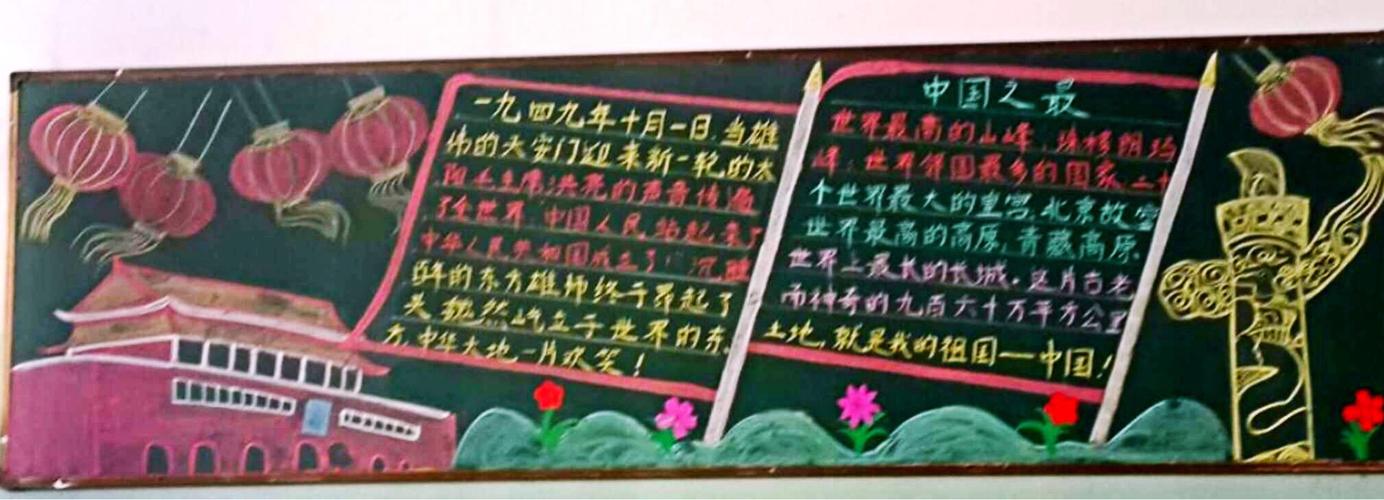 一九四九年十月一日,当雄
伟的天安门迎来新一轮的太
阳毛主席洪亮的声音传遍
了全世界:中国人民站起来了
中华人民共和国成立了!沉睡
百年的东方雄师终于昂起了
头巍然屹立于世界的东
方,中华大地一片欢笑!
中国之最
世界最高的山峰,珠穆朗玛
峰;世界邻国最多的国家,二十
个世界最大的皇宫,北京故宫
世界最高的高原,青藏高原
世界上最长的长城。这片古老
而神奇的九百六十万平方公里
土地,就是我的祖国——中国!